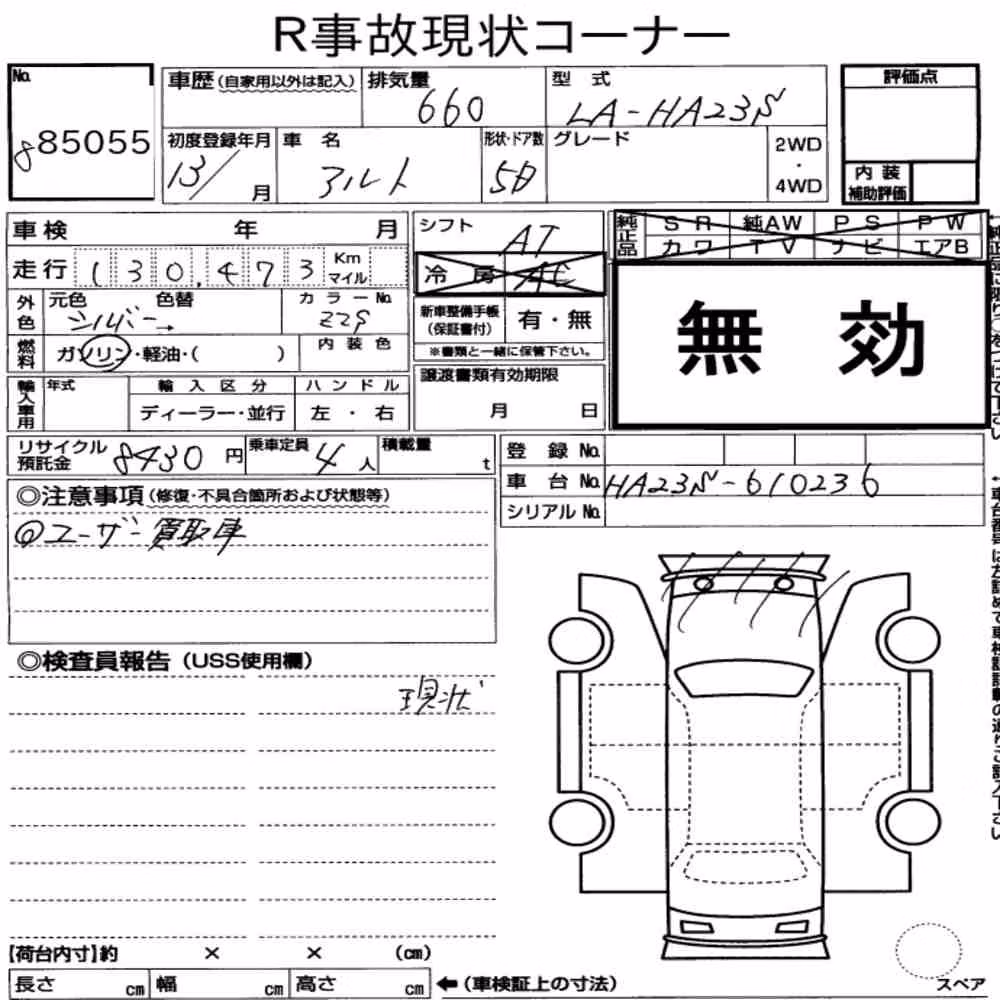 R事故現状コーナー
No.
885055
車歴(自家用以外は記入)
排気量
660
型式
LA-HA23S
評価点
初度登録年月
13/ 月
車名
アルト
形状・ドア数
5B
グレード
2WD
・
4WD
内装
補助評価
車検 年 月
シフト
AT
純正品
SR 純AW PS PW
カワ TV ナビ エアB
走行 130,473 Km マイル
冷房 AC
外色
元色 色替
シルバー→
カラーNo.
Z2S
新車整備手帳
(保証書付)
有・無
※書類と一緒に保管下さい。
無効
燃料
ガソリン・軽油・( )
内装色
輸入車用
年式
輸入区分
ディーラー・並行
ハンドル
左・右
譲渡書類有効期限
月 日
リサイクル
預託金
8430 円
乗車定員
4 人
積載量
t
登録No.
車台No. HA23S-610236
シリアルNo.
◎注意事項(修復・不具合箇所および状態等)
ユーザー買取車
◎検査員報告(USS使用欄)
現状
【荷台内寸】約 × × (cm)
長さ cm 幅 cm 高さ cm
←(車検証上の寸法)
スペア